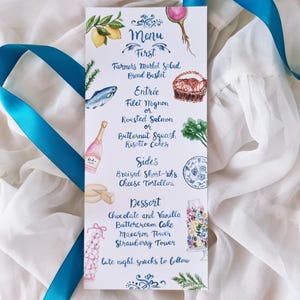 Menu
First
Farmers Market Salad
Bread Basket
Entrée
Filet Mignon
or
Roasted Salmon
or
Butternut Squash
Risotto Cakes
Sides
Braised Short-ribs
Cheese Tortellini
Dessert
Chocolate and Vanilla
Buttercream Cake
Macaron Tower
Strawberry Tower
late night snacks to follow